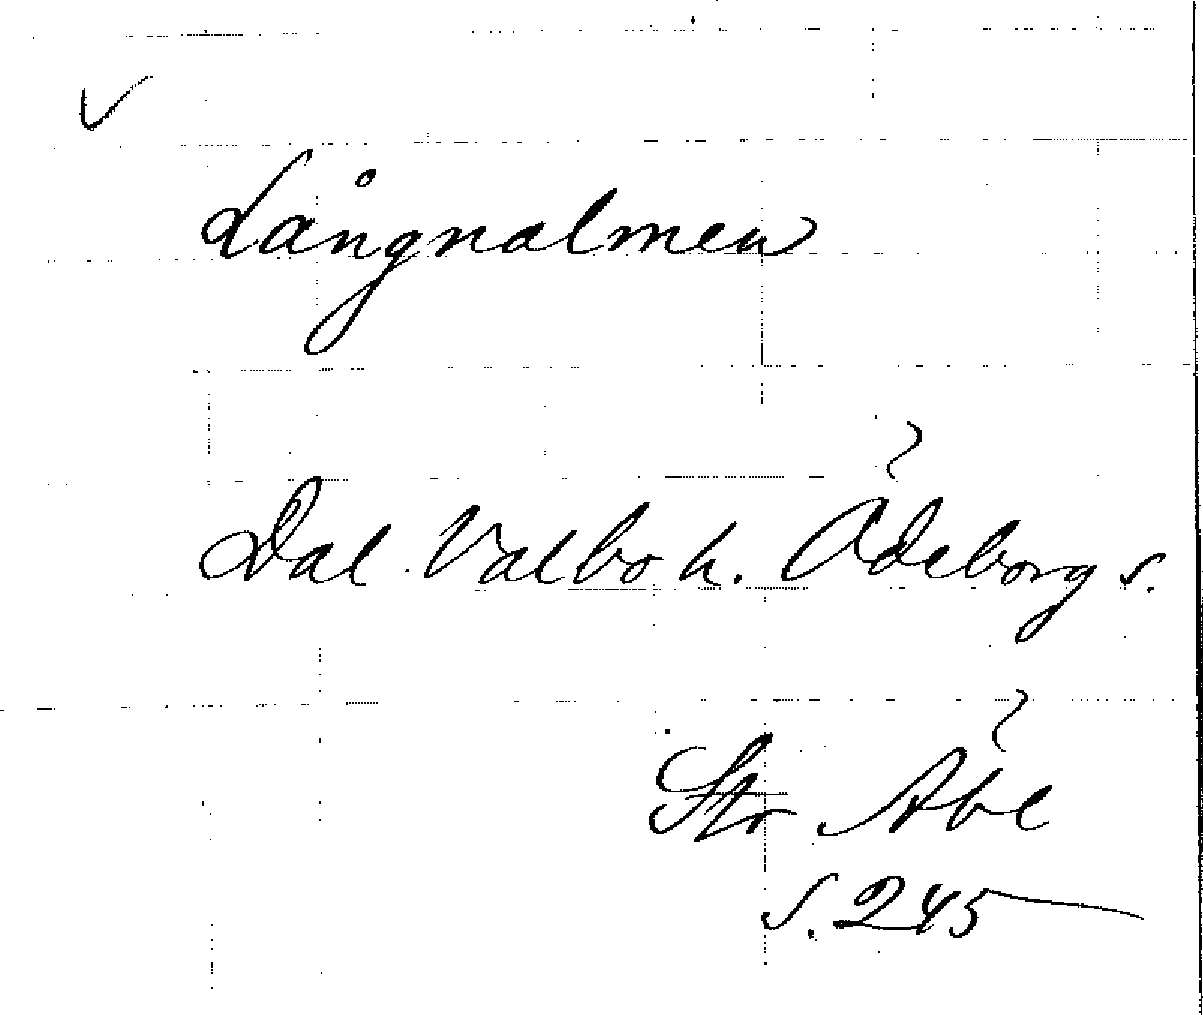 Långnalmen
Dal Valbo h. Ödeborg s.
Str
s. 245